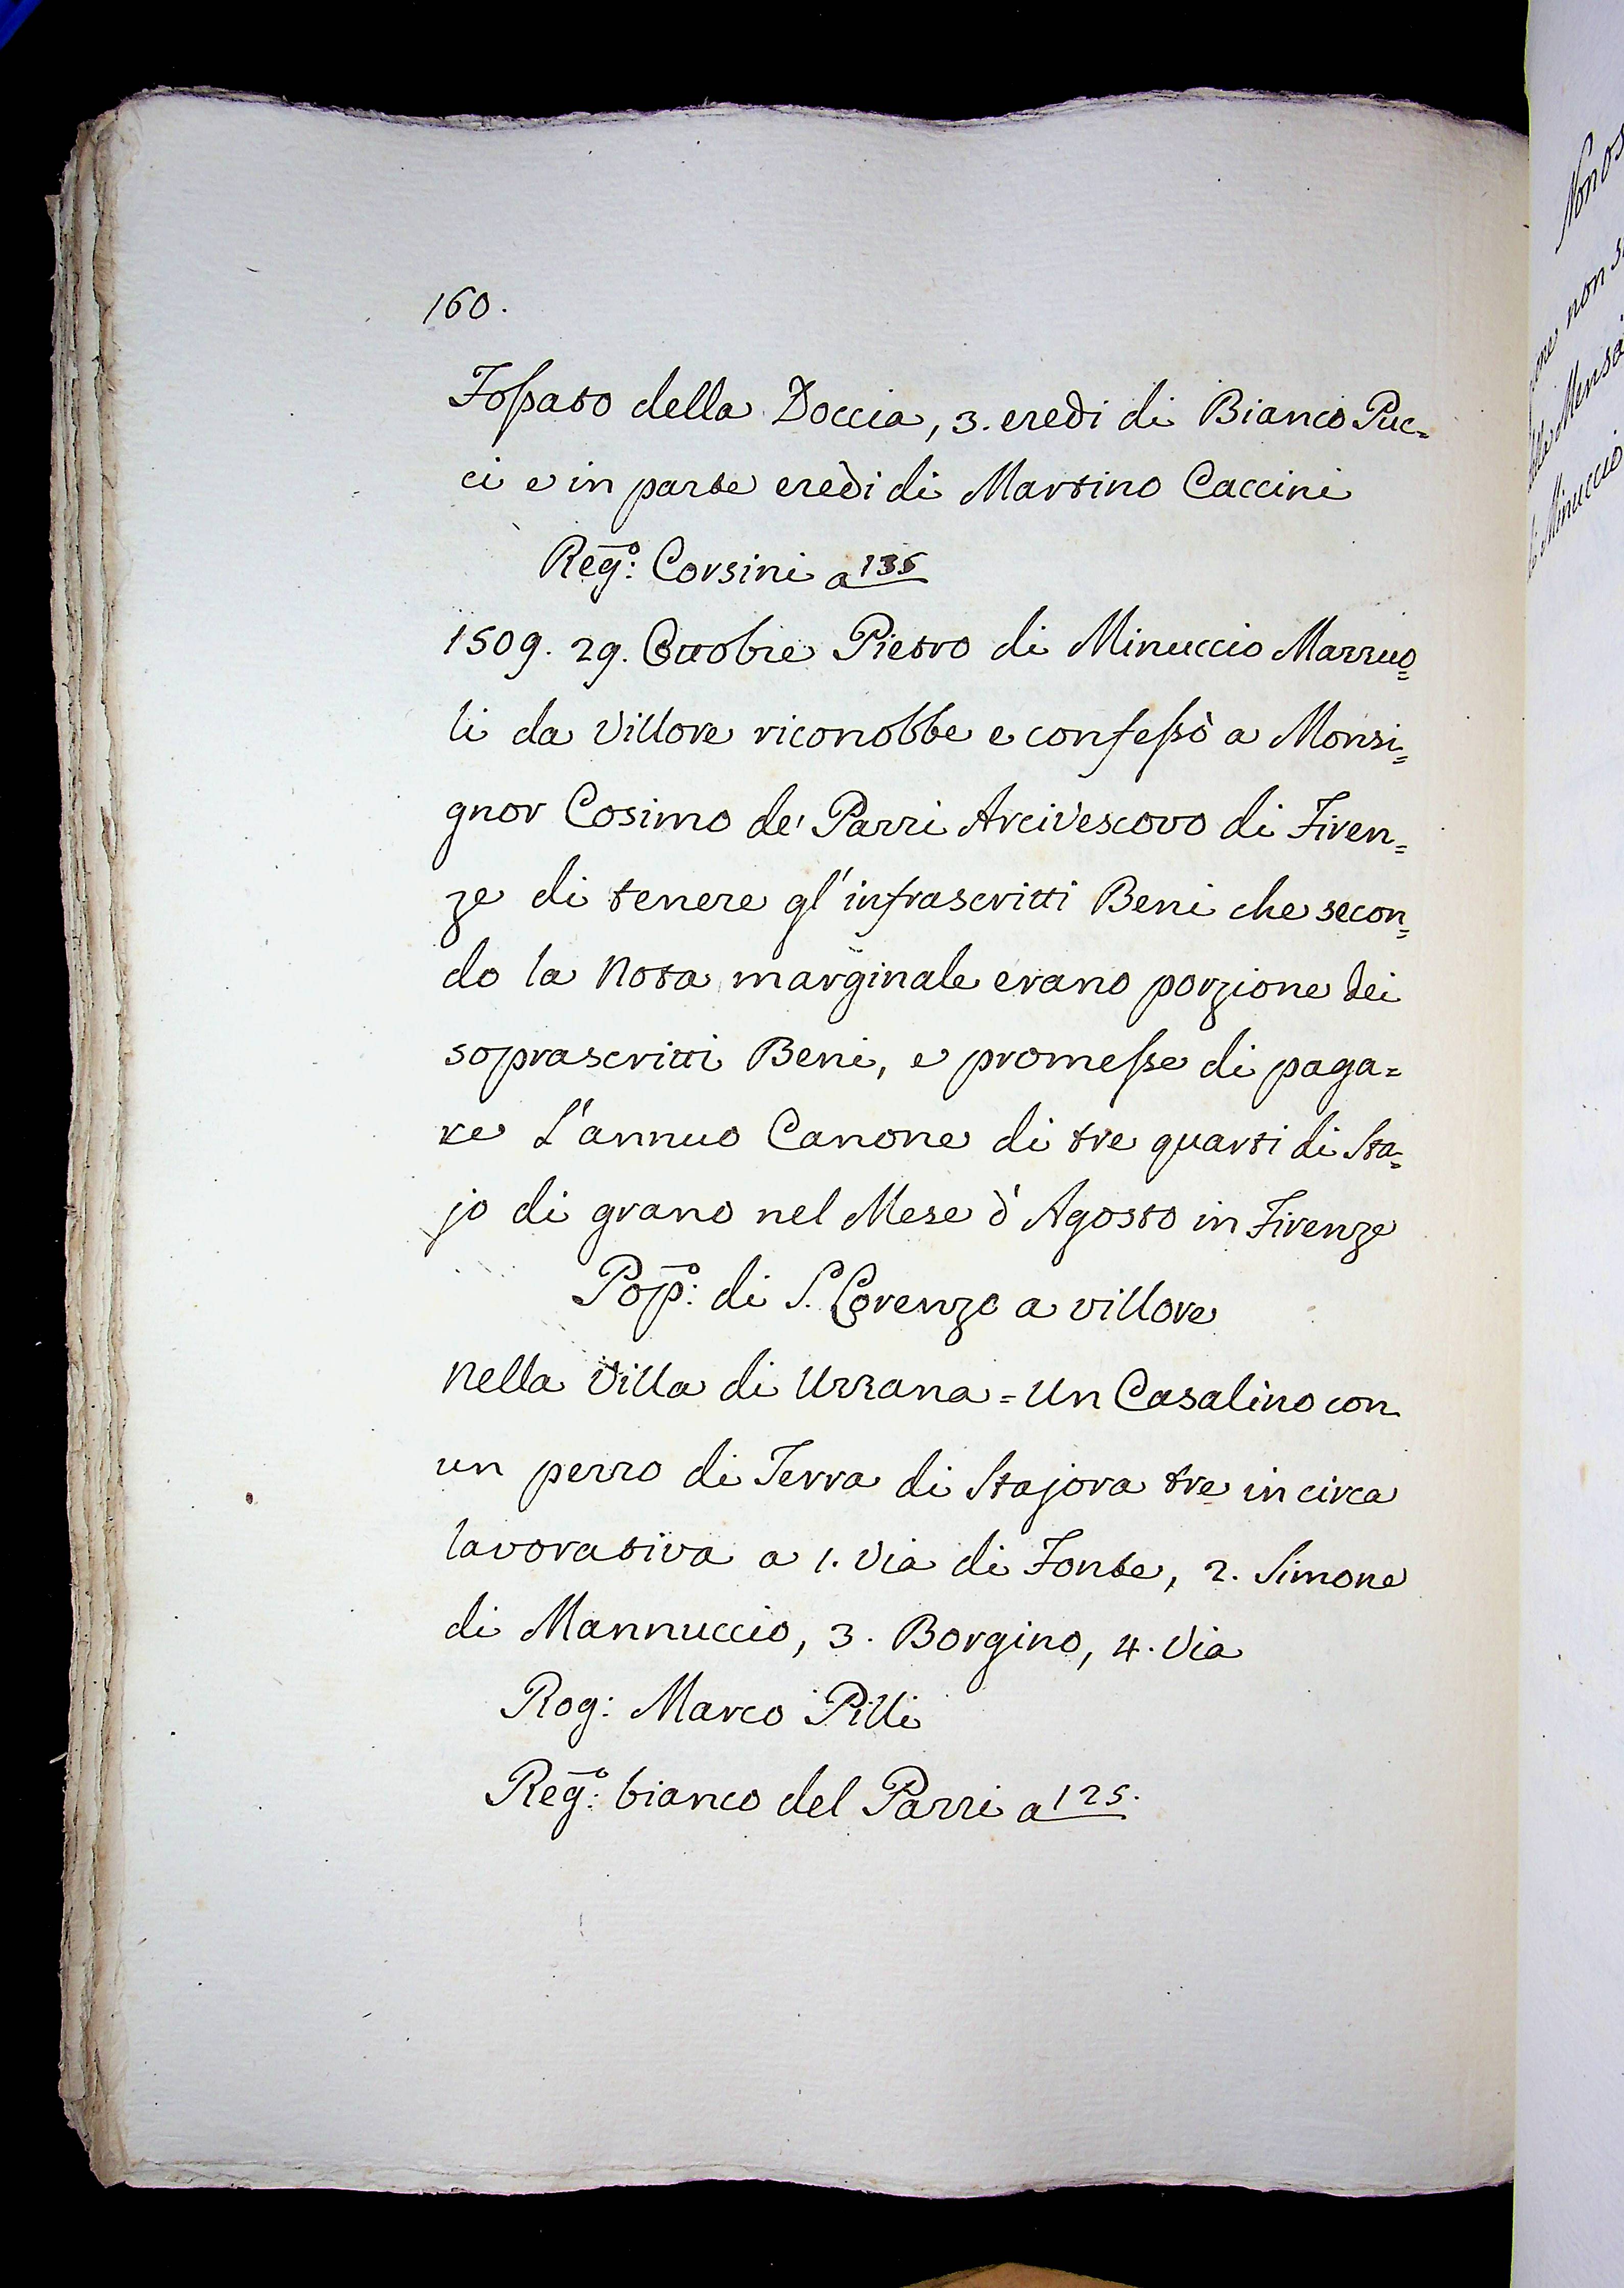 160.
Fossato della Doccia, 3. eredi di Bianco Puc=
ci e in parte eredi di Martino Caccini
Reg.º: Corsini a 135
1509. 29. Ottobre Pietro di Minuccio Mazzuo=
li da Villore riconobbe e confessò a Monsi=
gnor Cosimo de' Pazzi Arcivescovo di Firen=
ze di tenere gl'infrascritti Beni che secon=
do la Nota marginale erano porzione dei
soprascritti Beni, e promesse di paga=
re L'annuo Canone di tre quarti di Sta=
jo di grano nel Mese d'Agosto in Firenze
Pop.º: di S. Lorenzo a Villore
Nella Villa di Uzzana = Un Casalino con
un pezzo di Terra di Stajora tre in circa
lavorativa a 1. Via di Fonte, 2. Simone
di Mannuccio, 3. Borgino, 4. Via
Rog: Marco Pilli
Reg.º: bianco del Pazzi a 125.
non
Minuccio